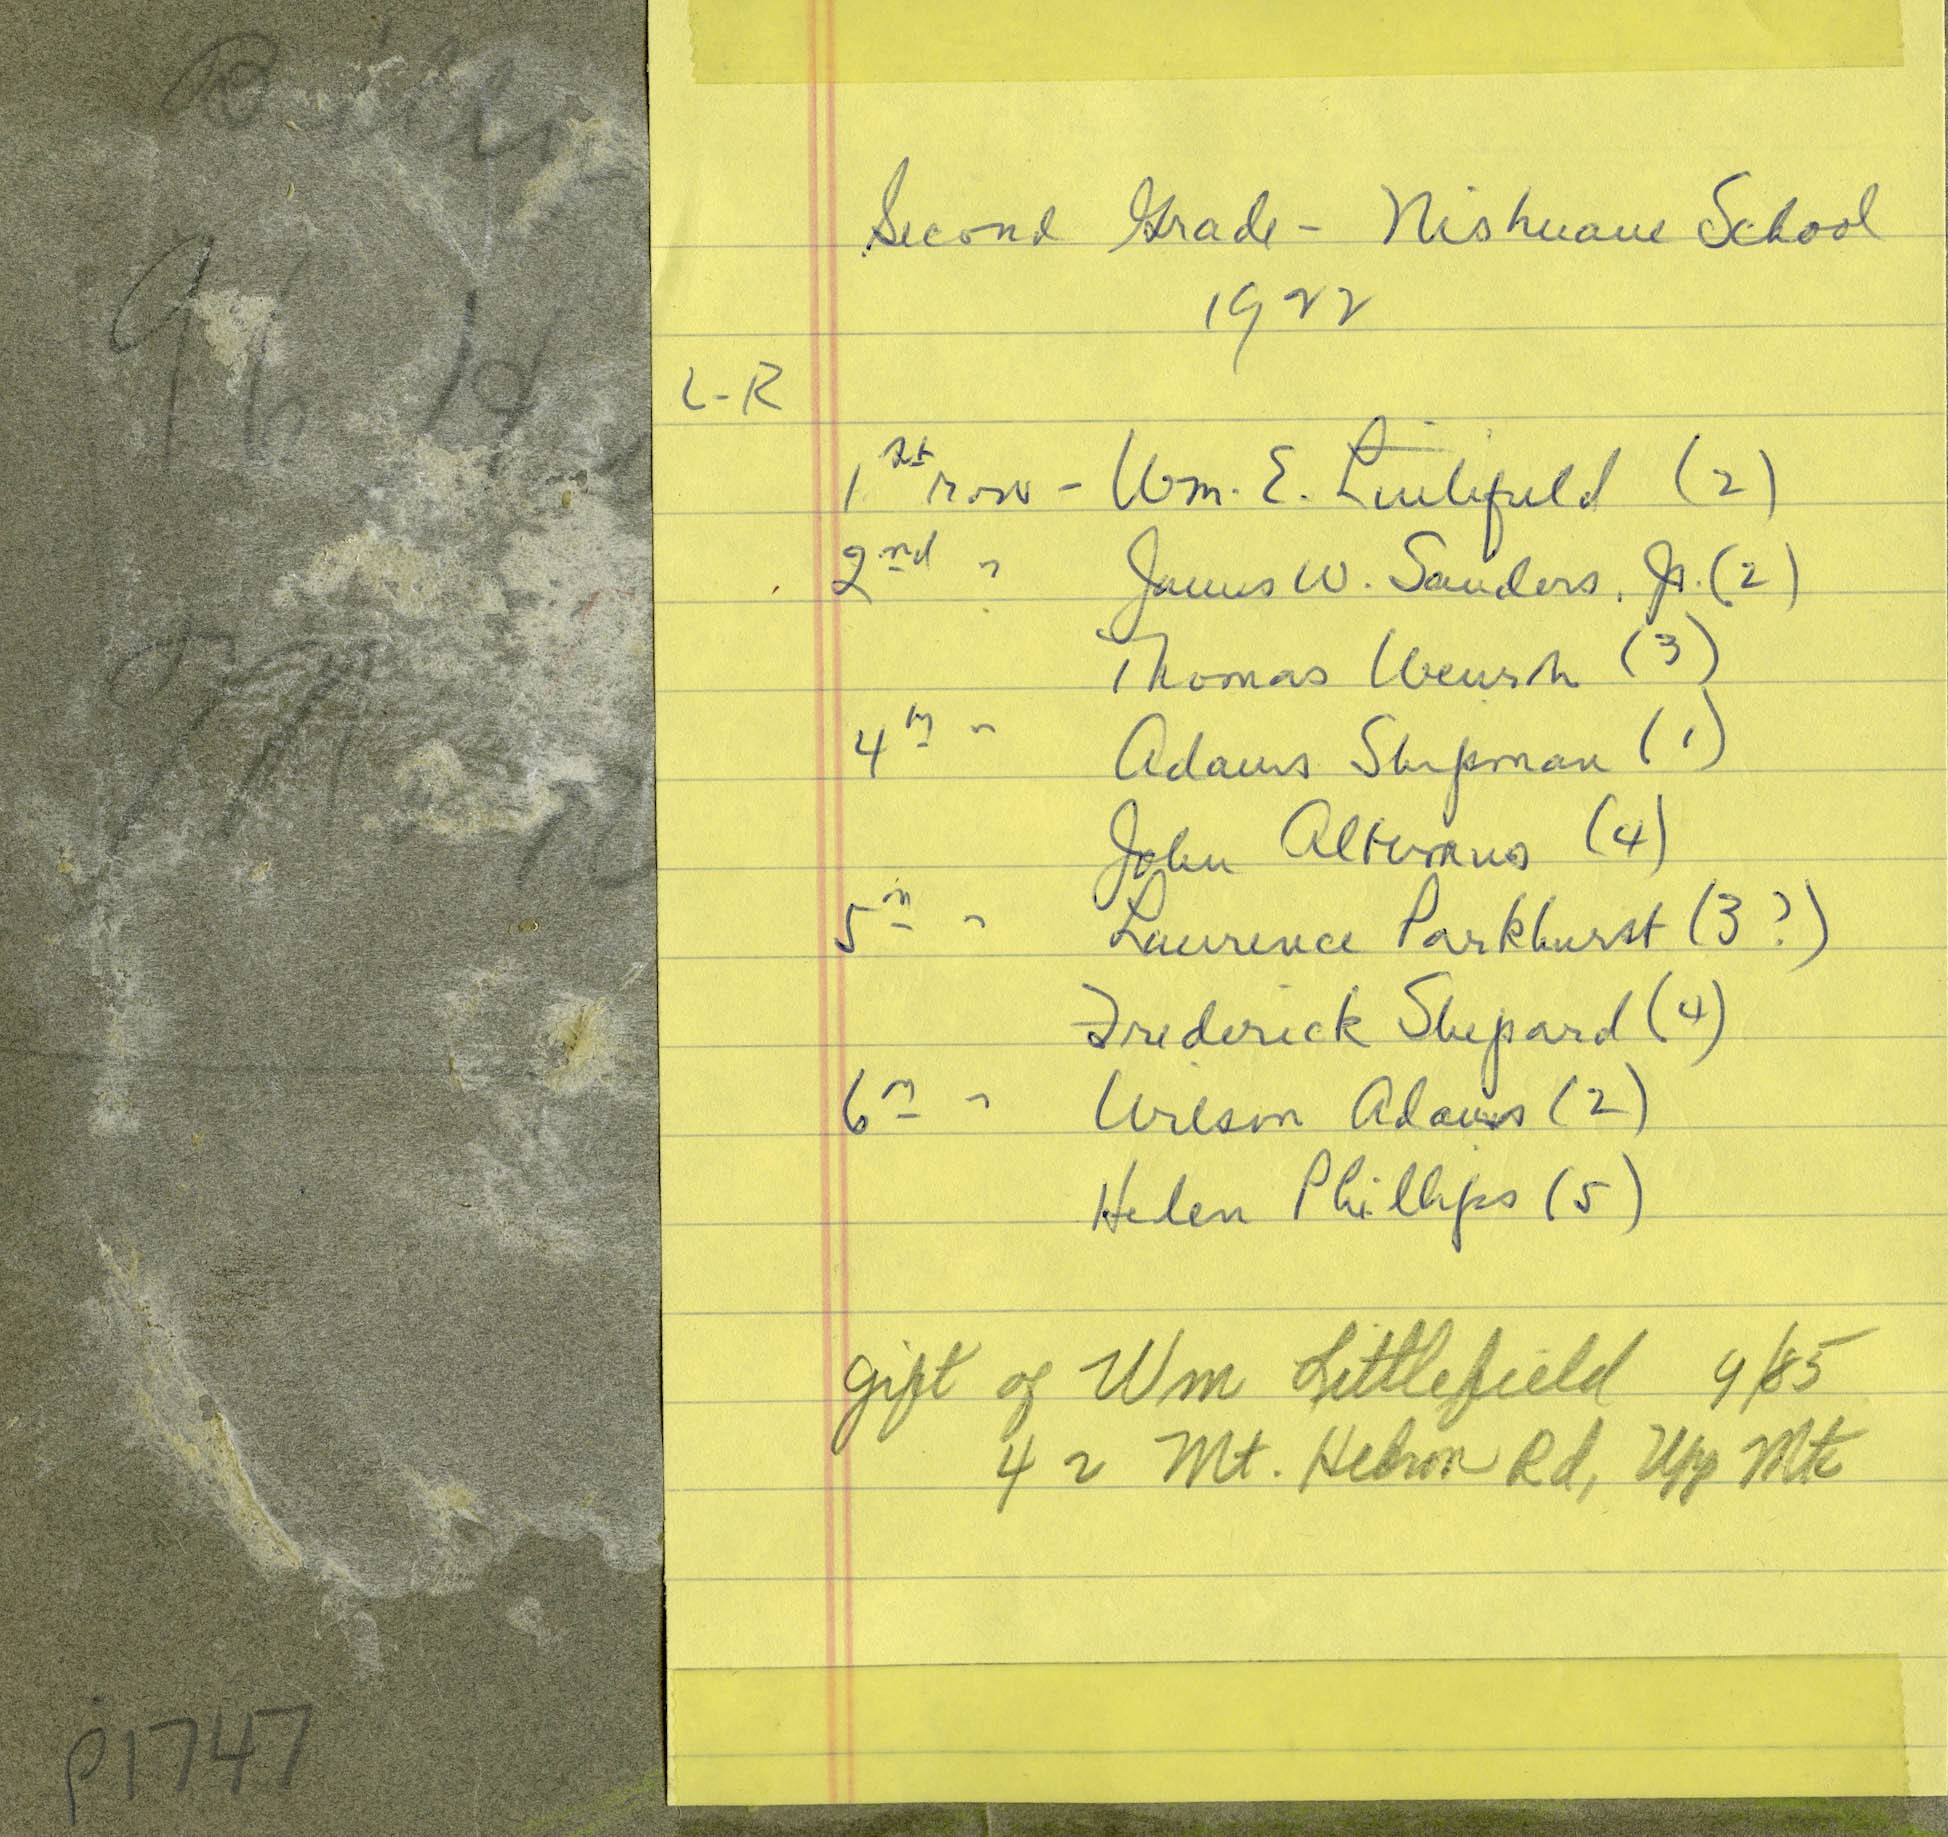 Second Grade - Nishuane School
1922
L-R
1st row - Wm. E. Littlefield (2)
2nd " James W. Sanders, Jr. (2)
Thomas (3)
4th " Adams Shipman (1)
John Altemus (4)
5th " Laurence Parkhurst (3?)
Frederick Shepard (4)
6th " Wilson Adams (2)
Helen Phillips (5)
gift of Wm Littlefield 9/85
42 Mt. Hebron Rd, Upp Mtc
P1747